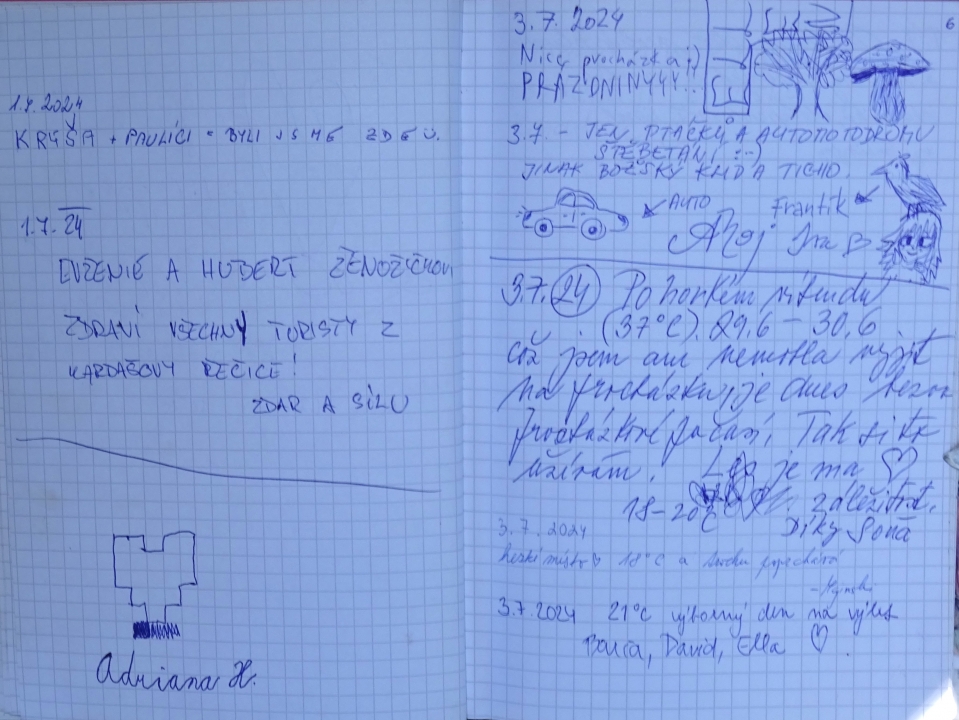 1.7.2024
KRYŠA + PAULÍCI • BYLI JSME ZDE U.
1.7.24
EVŽENIE A HUBERT
ZDRAVÍ VŠECHNY TURISTY Z
KARDAŠOVY ŘEČICE!
ZDAR A SÍLU
Adriana H.
6
3.7. 2024
Nice procházka :)
PRÁZDNINYYY!!
3.7. - JEN PTÁČKŮ A AUTOMOTODROMU
ŠTĚBETÁNÍ :-)
JINAK BOŽSKÝ KLID A TICHO.
AUTO
Frantík
Ahoj
3.7. 24 Po horkém víkendu
(37°C). 29.6 – 30.6
což jsem ani nemohla vyjít
na procházku, je dnes
procházkové počasí. Tak si to
užívám. Les je má ♡
18-20°C záležitost.
Díky Soňa
3.7.2024
hezké místo 18°C a trochu
3.7.2024 21°C výborný den na výlet
Barča, David, Ella ♡.